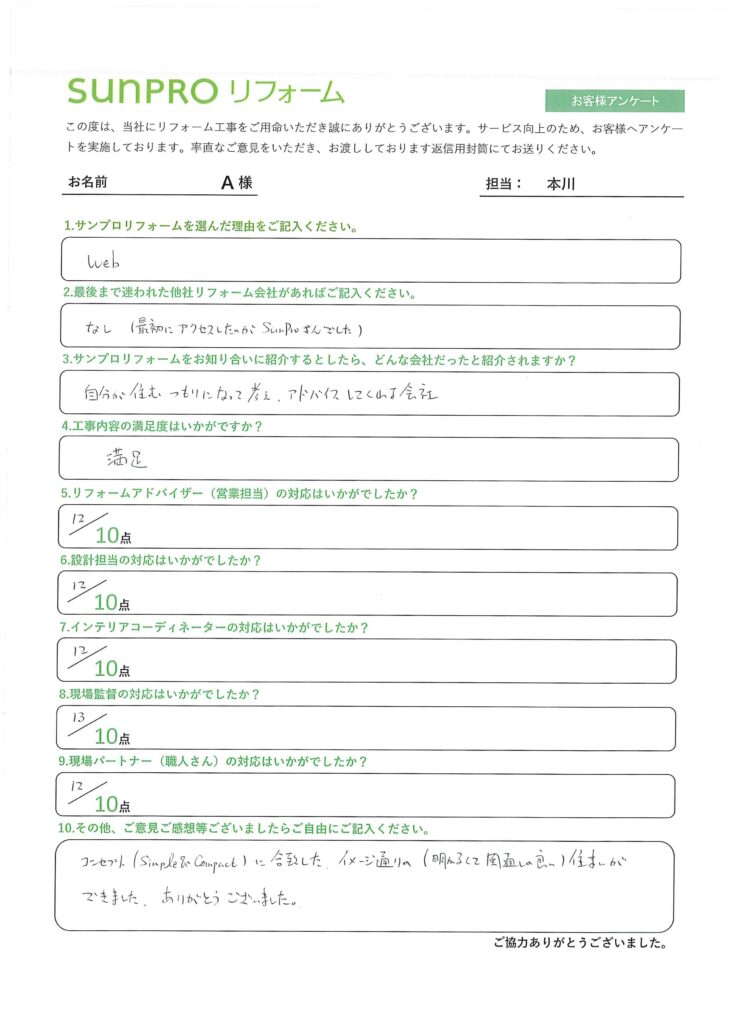 SUNPRO リフォーム
お客様アンケート
この度は、当社にリフォーム工事をご用命いただき誠にありがとうございます。サービス向上のため、お客様へアンケー
トを実施しております。率直なご意見をいただき、お渡ししております返信用封筒にてお送りください。
お名前 A 様 担当： 本川
1.サンプロリフォームを選んだ理由をご記入ください。
Web
2.最後まで迷われた他社リフォーム会社があればご記入ください。
なし (最初にアクセスしたのが SunProさんでした)
3.サンプロリフォームをお知り合いに紹介するとしたら、どんな会社だったと紹介されますか？
自分が住むつもりになって考え、アドバイスしてくれる会社
4.工事内容の満足度はいかがですか？
満足
5.リフォームアドバイザー（営業担当）の対応はいかがでしたか？
12/10点
6.設計担当の対応はいかがでしたか？
12/10点
7.インテリアコーディネーターの対応はいかがでしたか？
12/10点
8.現場監督の対応はいかがでしたか？
13/10点
9.現場パートナー（職人さん）の対応はいかがでしたか？
12/10点
10.その他、ご意見ご感想等ございましたらご自由にご記入ください。
コンセプト (Simple & Compact) に合致した、イメージ通りの (明かるくて風通しの良い) 住まいが
できました、ありがとうございました。
ご協力ありがとうございました。